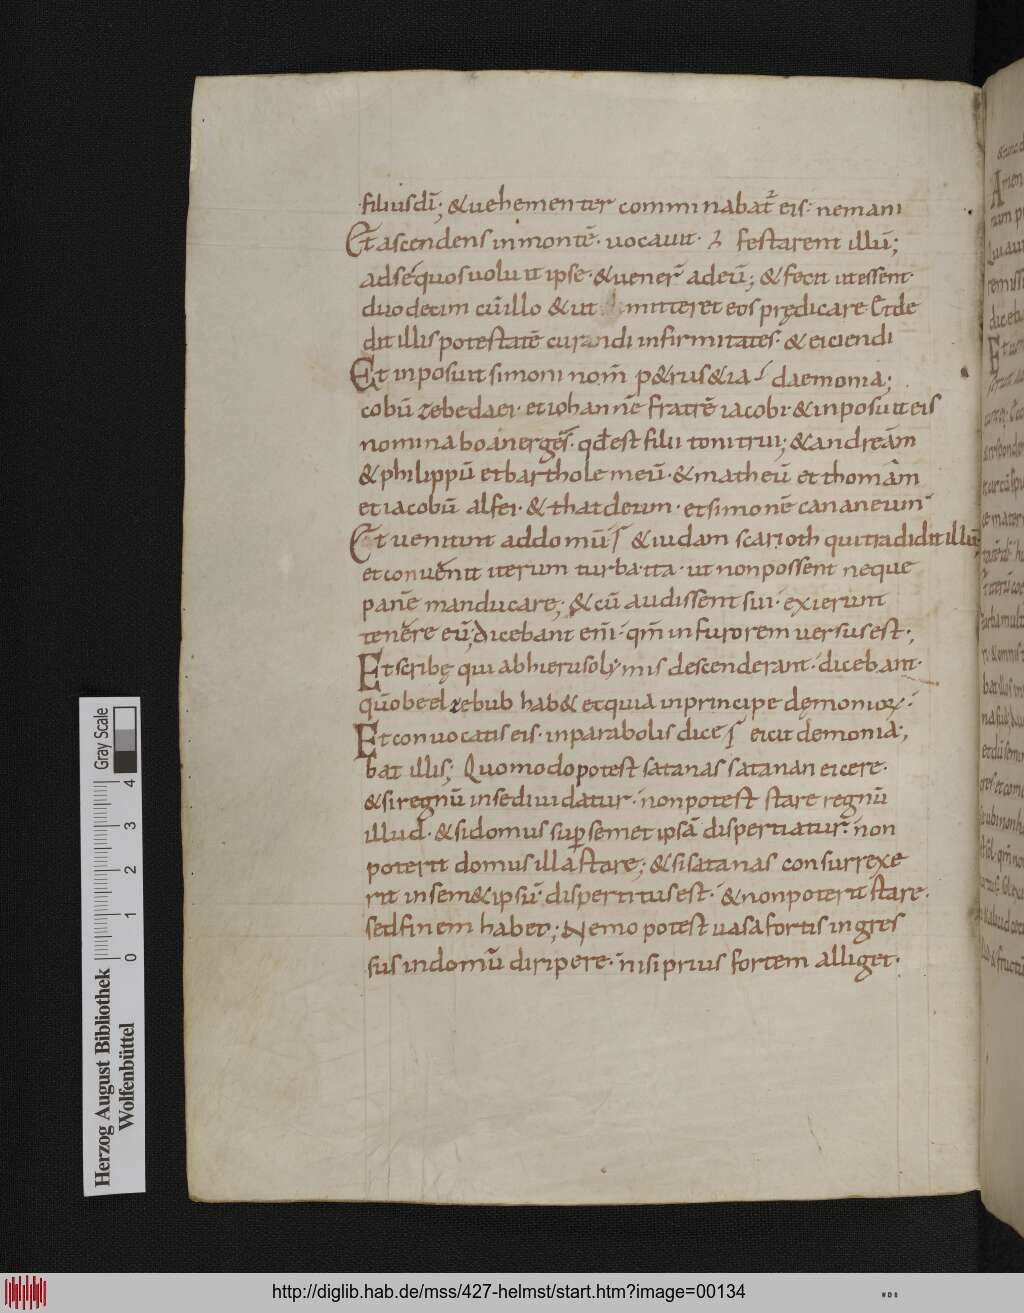 filiusdī; &uehementer comminabat᷑ eis· nemani
Et ascendens inmontē· uocauit· festarent illū;
adse quosuoluit ipse· &uener̄ adeū; &fecit utessent·
duodecim cūillo &ut mitteret eos prędicare Etde
dit illis potestatē curandi infirmitates· &eiciendi
Et inposuit simoni nom̄ p&rus&ia daemonia;
cobū zebedaei· et iohannē fratrē iacobi· &inposuit eis
nomina boanerges· qđest filii tonitrui; &andream
&philippū et bartholemeū· &matheū et thomam
et iacobū alfei· &thatdeum· et simonē cananeum
Et ueniunt addomū &iudam scarioth quitradidit illū;
et conuenit iterum turba ita· ut nonpossent neque
panē manducare; &cū audissent sui· exierunt
tenere eū; Dicebant enī· qm̄ infurorem uersusest·,
Et scribę qui abhierusolymis descenderant· dicebant·
qūo beelzebub hab& et quia inprincipe demoniorꝝ·
Et conuocatis eis· inparabolis dice eicit demonia·,
bat illis; Quomodo potest satanas satanan eicere·
&siregnū insediuidatur· nonpotest stare regnū
illud· &sidomus sup̄semetipsā dispertiatur· non
poterit domus illa stare; &sisatanas consurrexe
rit insem&ipsū dispertitusest· &nonpoterit stare·
sedfinem habet; Nemo potest uasa fortis ingres
sus indomū diripere· nisi prius fortem alliget·
Gray Scale
0 1 2 3 4
Herzog August Bibliothek
Wolfenbüttel
http://diglib.hab.de/mss/427-helmst/start.htm?image=00134